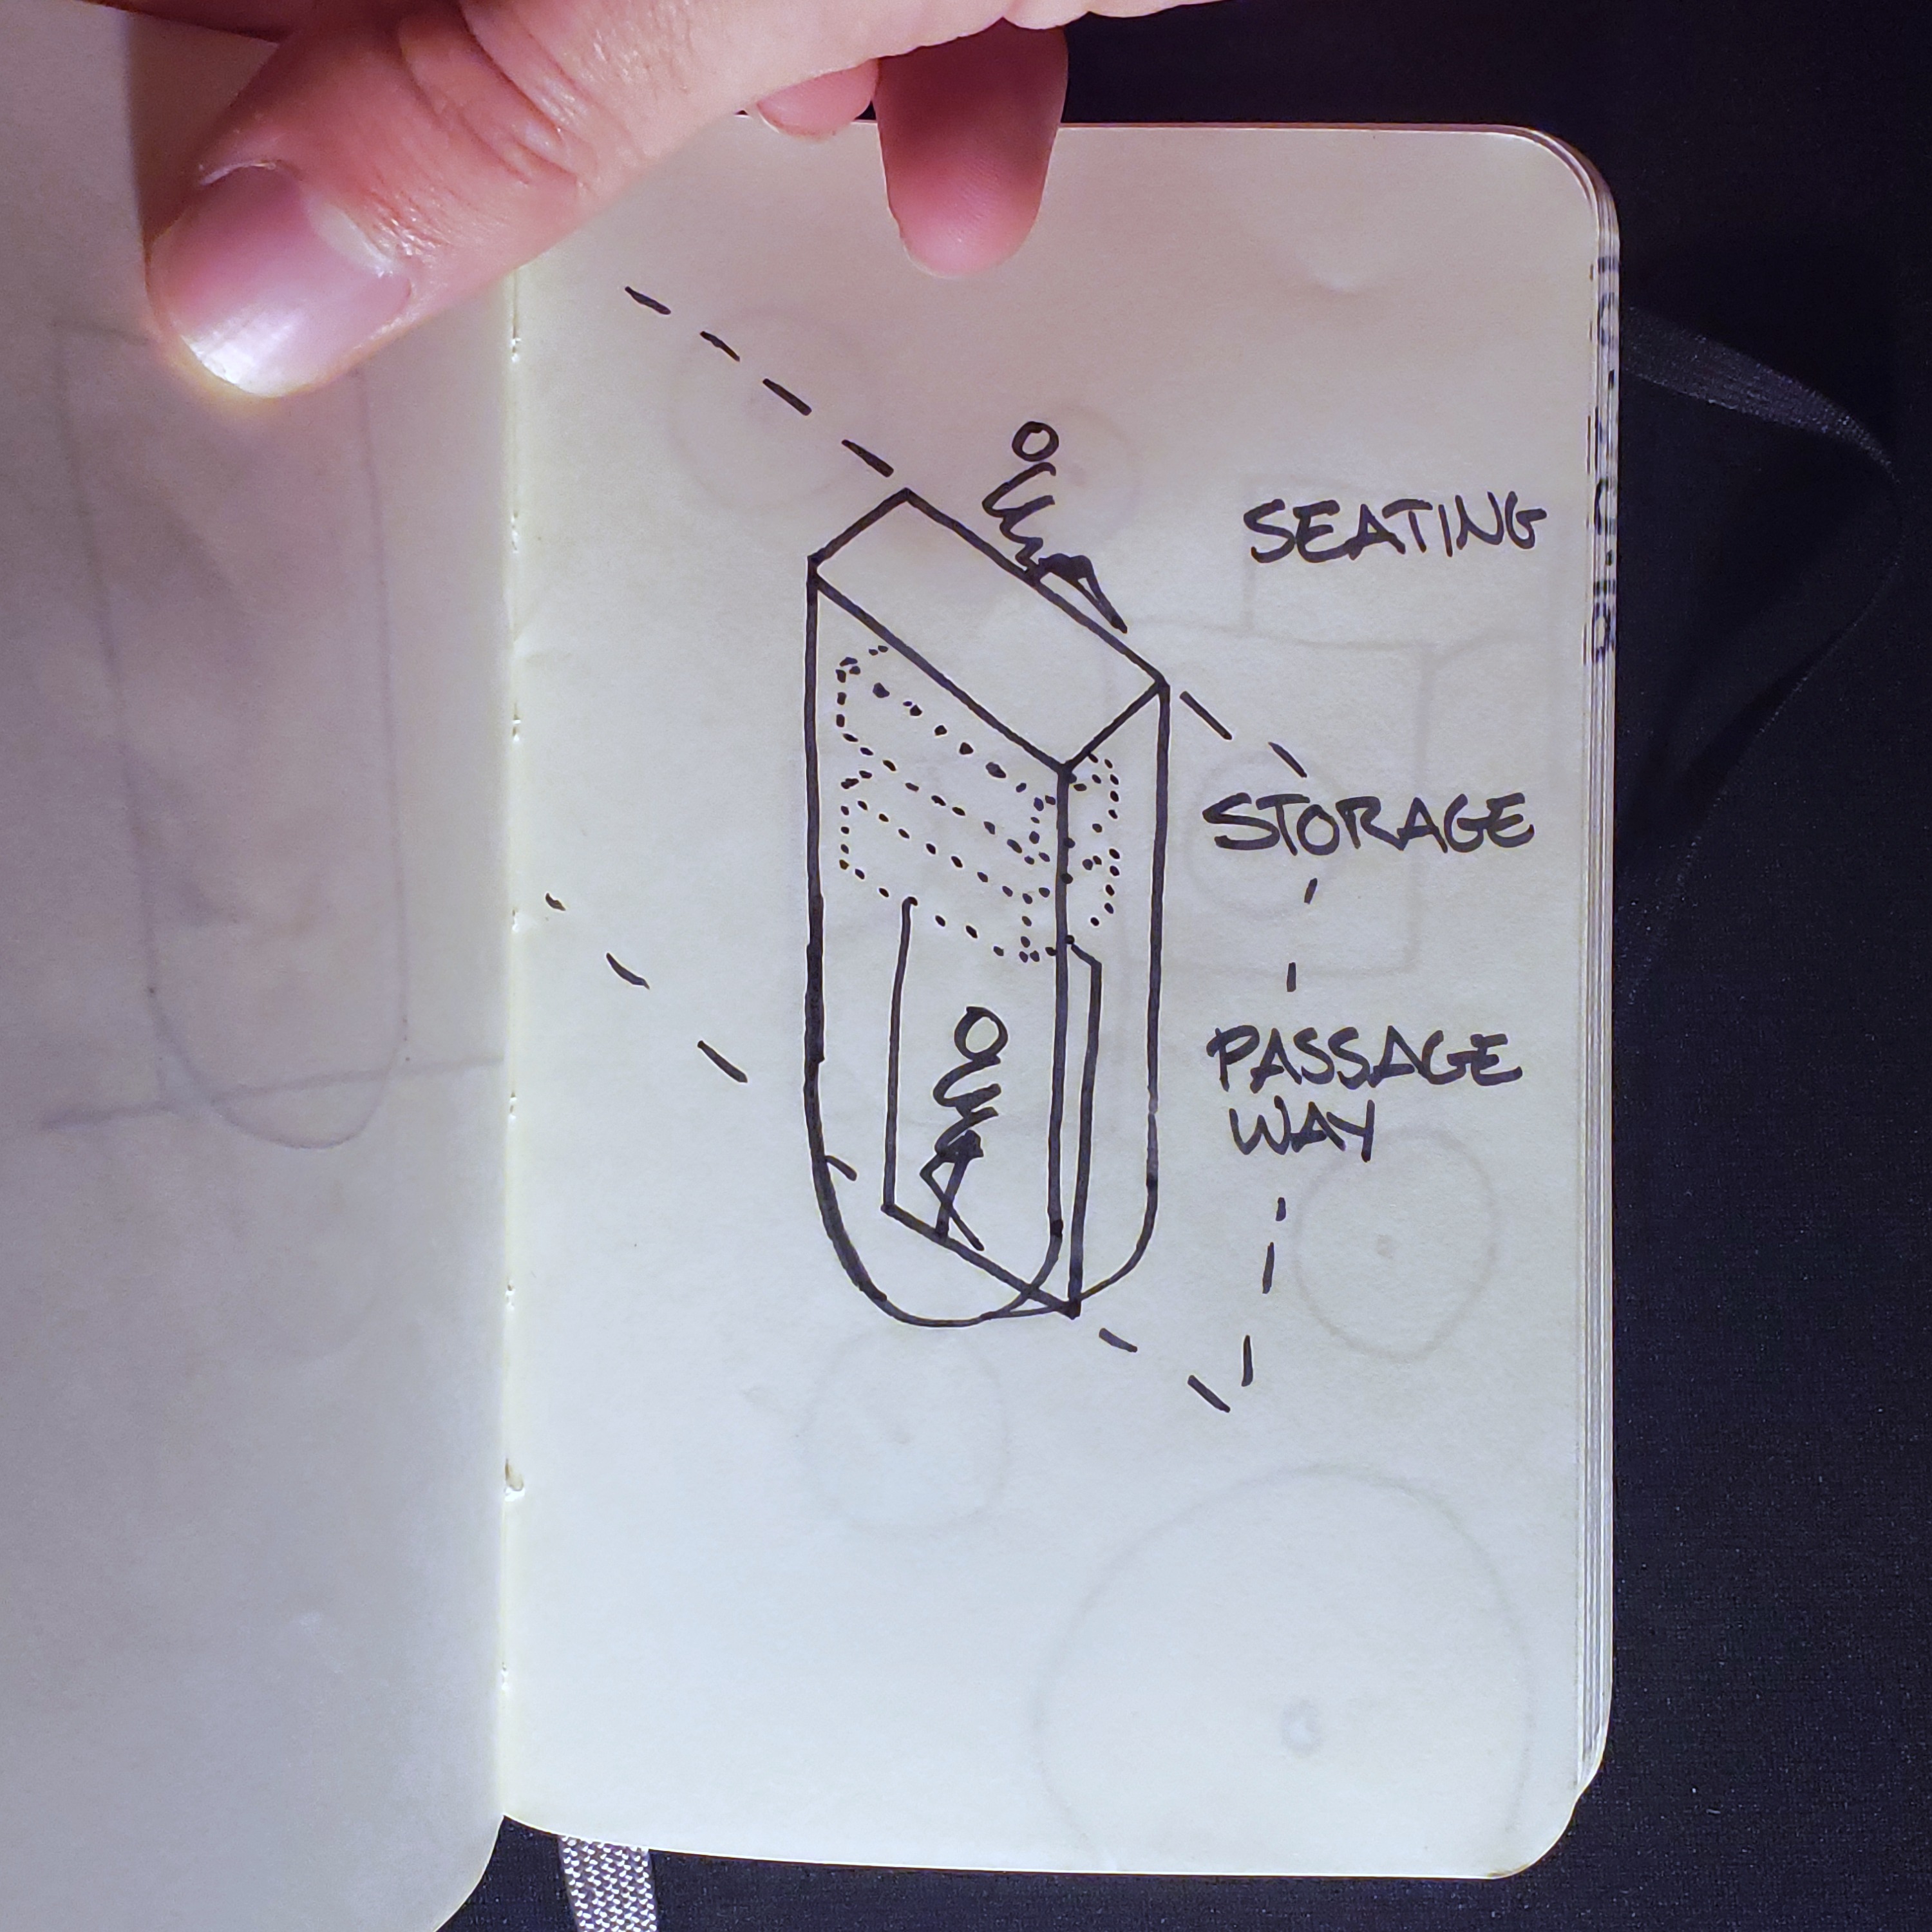 SEATING
STORAGE
PASSAGE
WAY